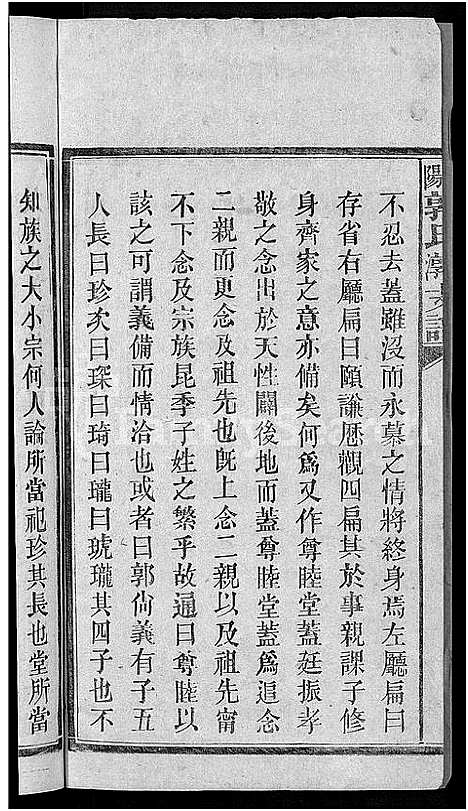 陽郭氏
不忍去蓋雖沒而永慕之情將終身焉左廳扁曰
存省右廳扁曰頤譾歷觀四扁其於事親課子修
身齊家之意亦備矣何爲又作尊睦堂蓋廷振孝
敬之念出於天性闢後地而蓋尊睦堂蓋爲追念
二親而更念及祖先也旣上念二親以及祖先甯
不下念及宗族昆季子姓之繁乎故通曰尊睦以
該之可謂義備而情洽也或者曰郭尙義有子五
人長曰珍次曰琛曰琦曰瓏曰琥瓏其四子也不
知族之大小宗何人論所當祀珍其長也堂所當